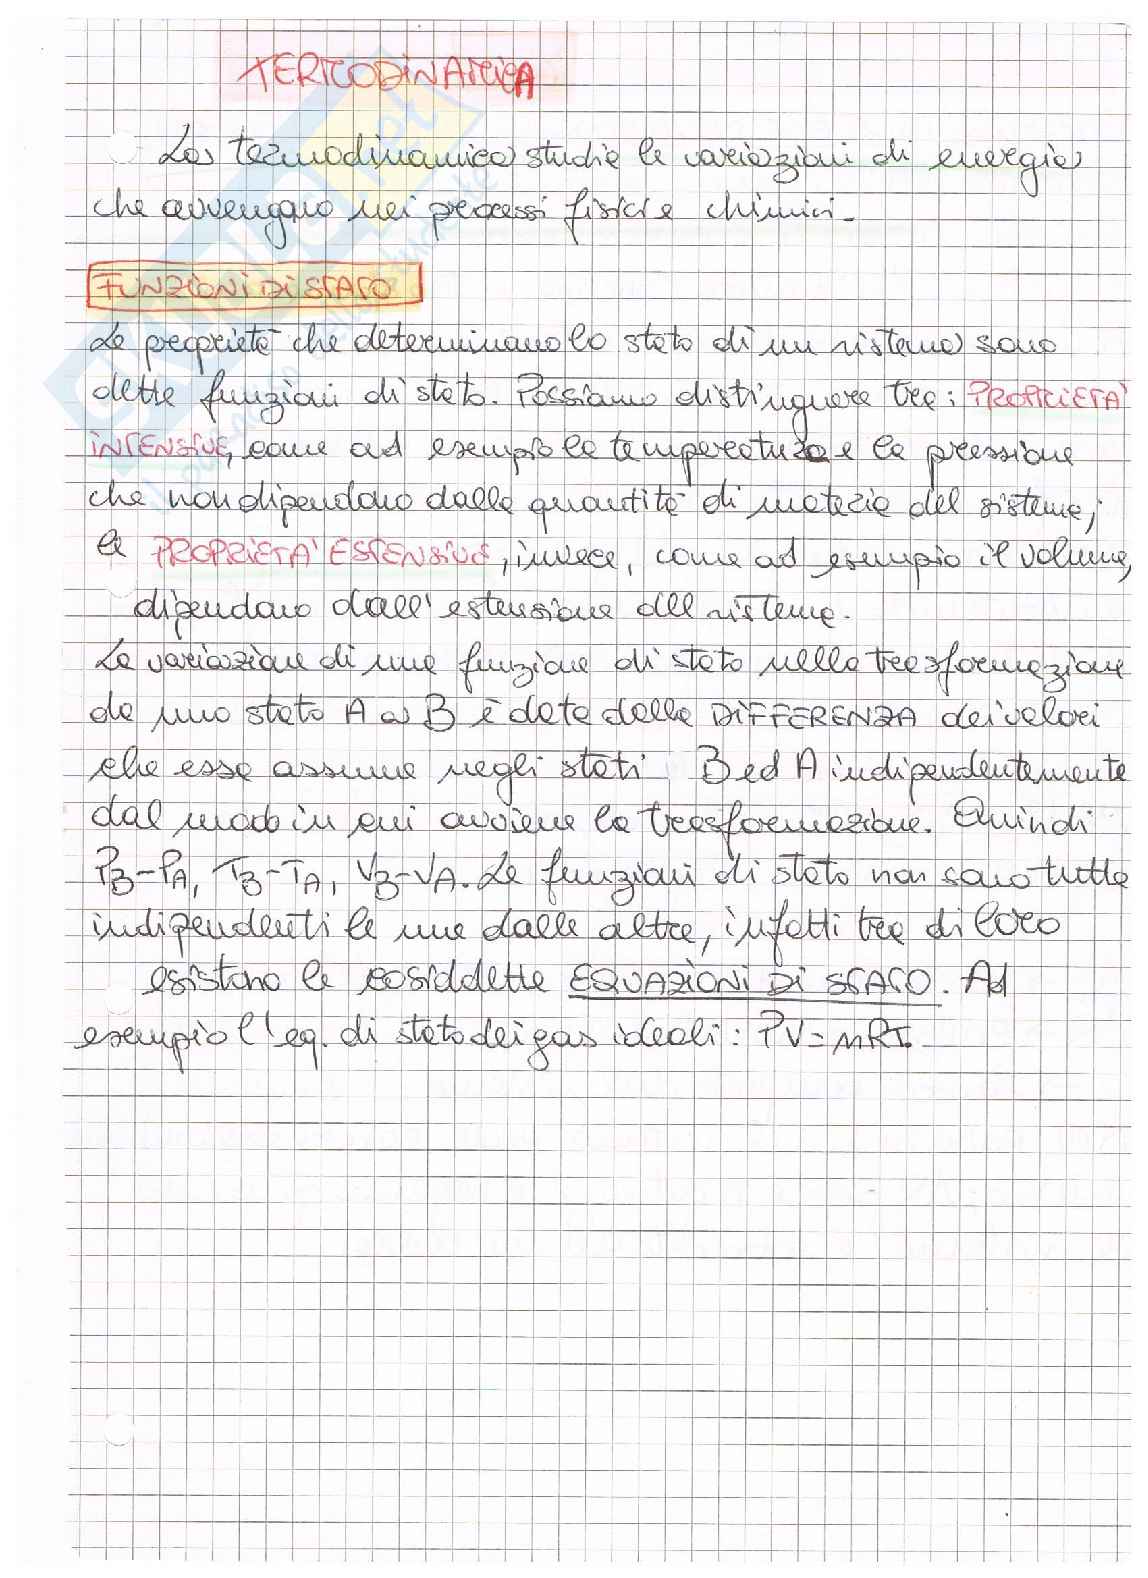 TERMODINAMICA
La termodinamica studia le variazioni di energia
che avvengono nei processi fisici e chimici.
FUNZIONI DI STATO
Le proprietà che determinano lo stato di un sistema sono
dette funzioni di stato. Possiamo distinguere tra: PROPRIETA'
INTENSIVE, come ad esempio la temperatura e la pressione
che non dipendono dalla quantità di materia del sistema;
le PROPRIETA' ESTENSIVE, invece, come ad esempio il volume,
dipendono dall'estensione del sistema.
La variazione di una funzione di stato nella trasformazione
da uno stato A a B è data dalla DIFFERENZA dei valori
che essa assume negli stati B ed A indipendentemente
dal modo in cui avviene la trasformazione. Quindi
PB-PA, TB-TA, VB-VA. Le funzioni di stato non sono tutte
indipendenti le une dalle altre, infatti tra di loro
esistono le cosiddette EQUAZIONI DI STATO. Ad
esempio l'eq. di stato dei gas ideali: PV=nRT.